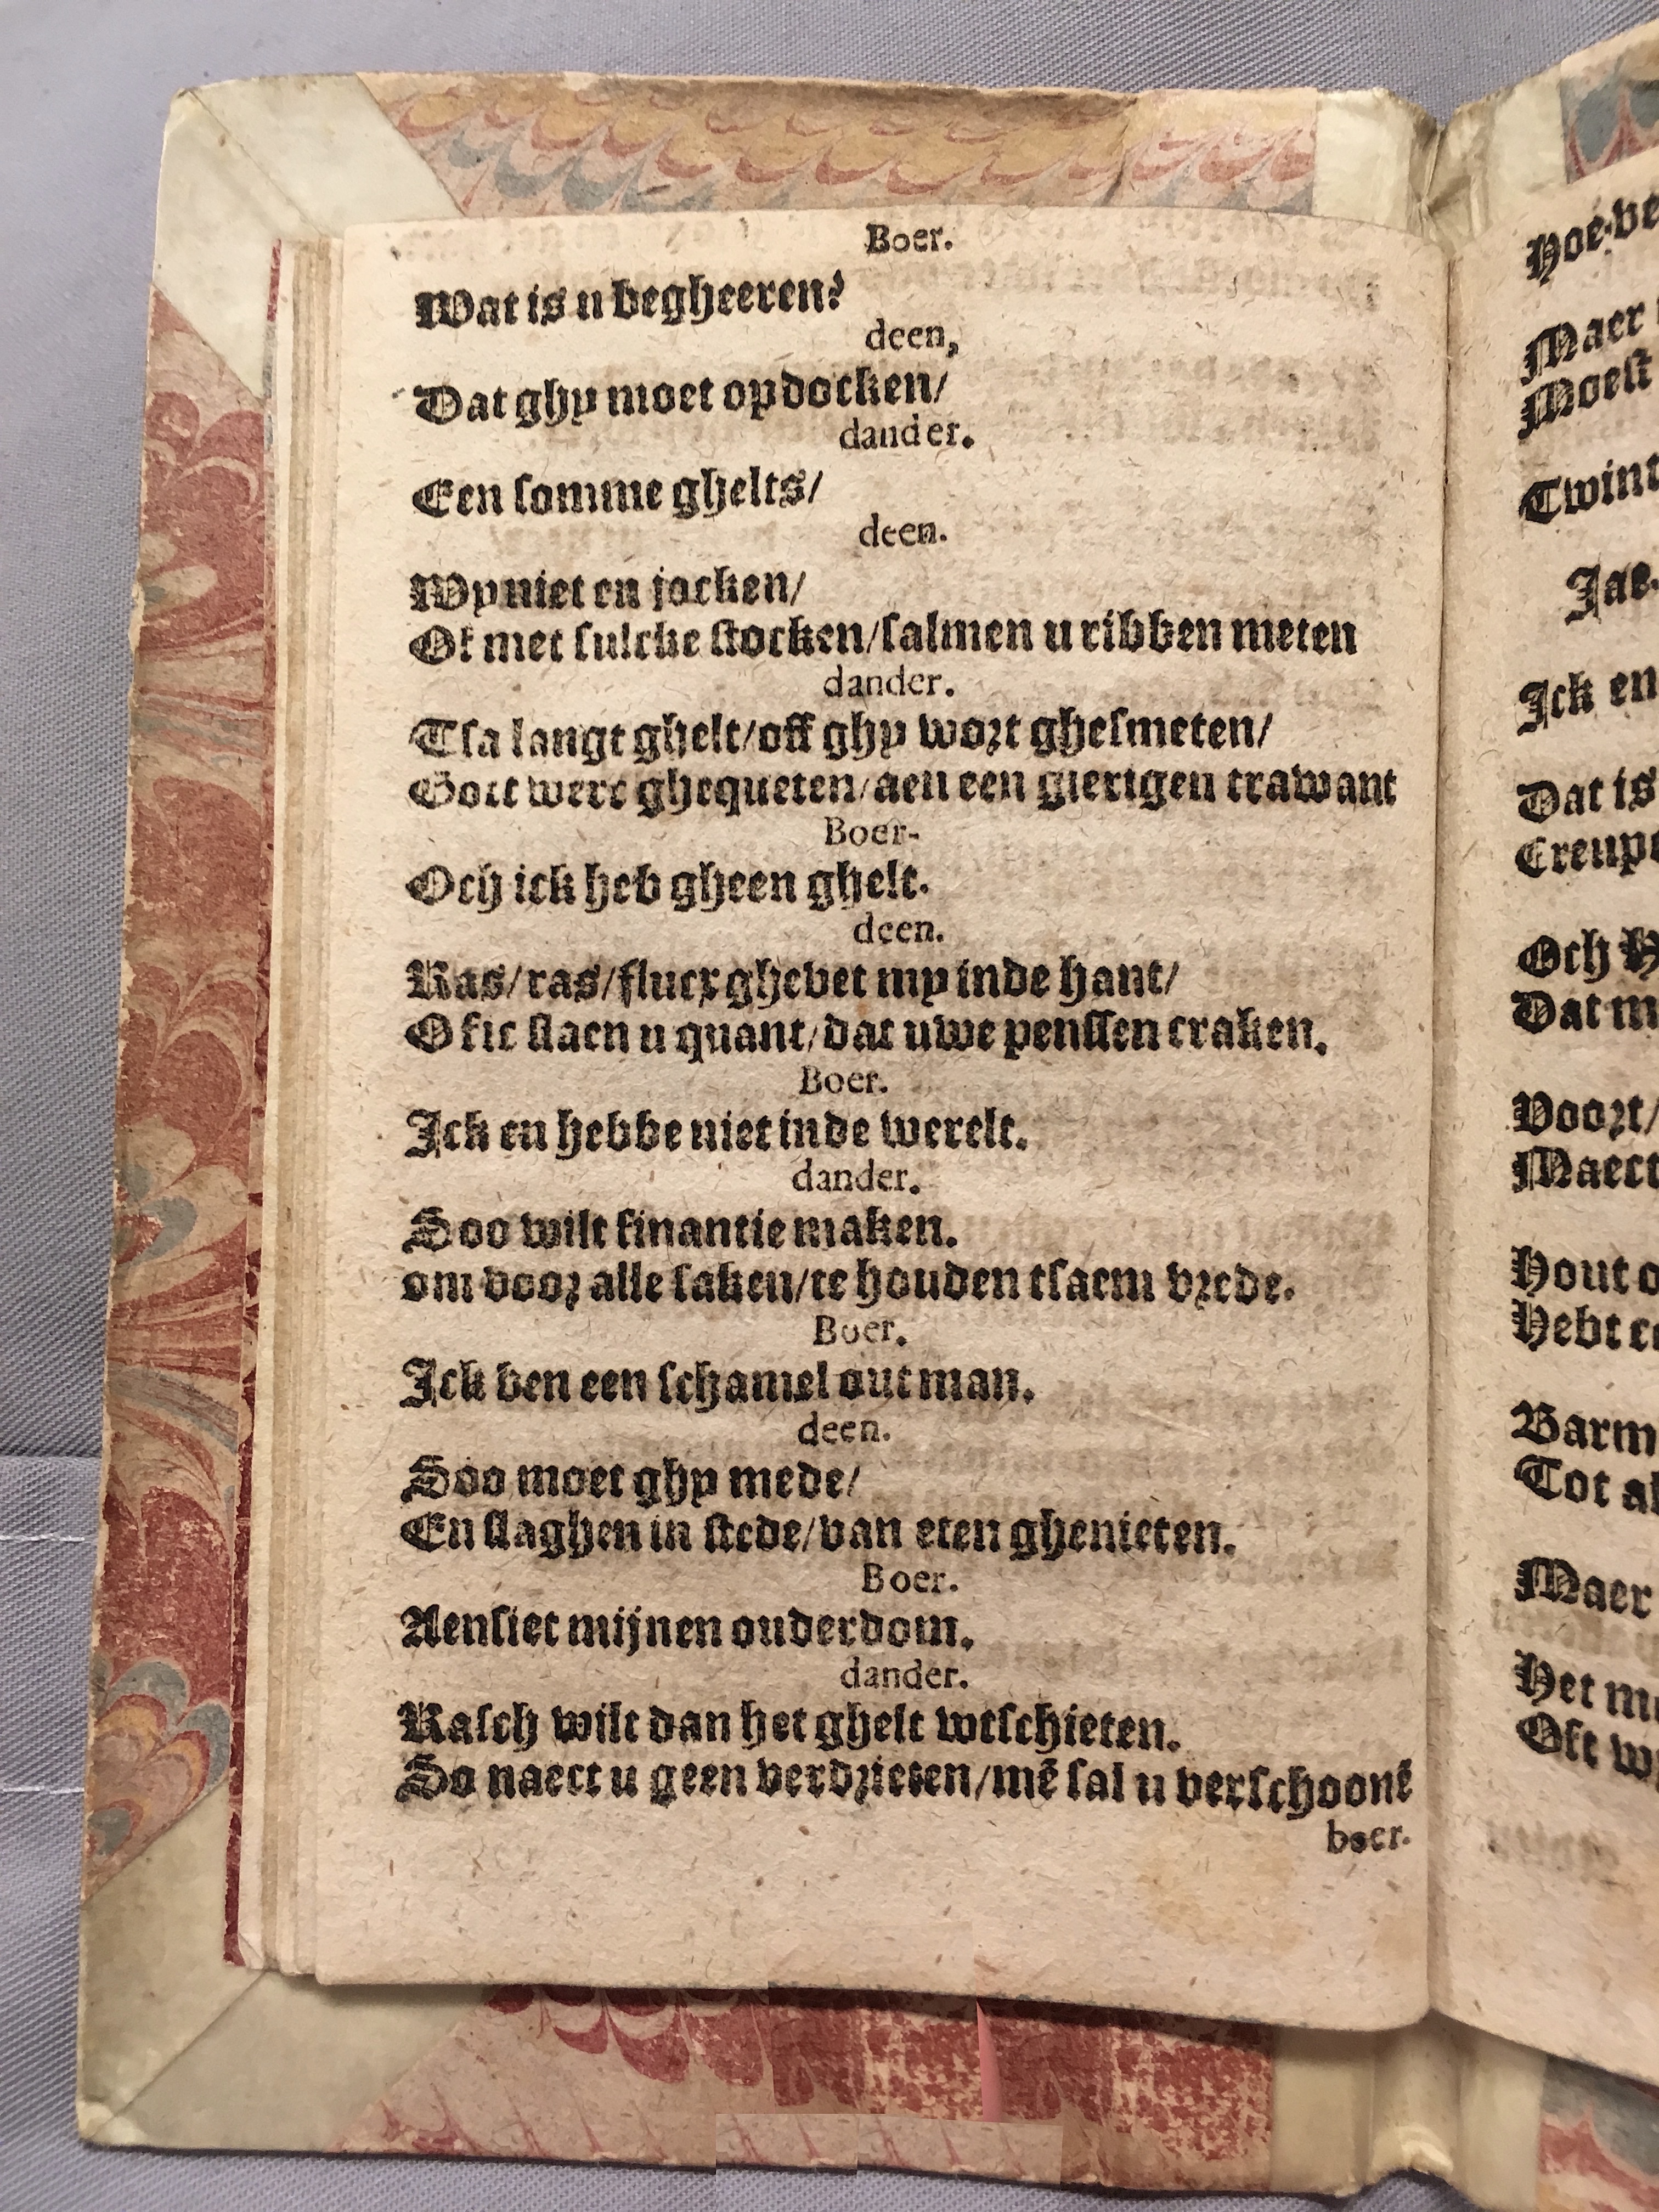 Boer.
Wat is u begheeren?
deen,
Dat ghy moet opdocken/
dander.
Een somme ghelts/
deen.
Wy niet en jocken/
Of met sulcke stocken/salmen u ribben meten
dander.
Tsa langt ghelt/off ghy wort ghesmeten/
Gott were ghequeten/aen een gierigen trawant
Boer-
Och ick heb gheen ghelt.
deen.
Ras/ras/flucx ghevet my inde hant/
Ofic slaen u quant/dat uwe penssen craken.
Boer.
Ick en hebbe niet inde werelt.
dander.
Soo wilt finantie maken.
om voor alle saken/te houden tsaem vrede.
Boer.
Ick ben een schamel out man.
deen.
Soo moet ghy mede/
En slaghen in stede/van eten ghenieten.
Boer.
Aensiet mijnen ouderdom.
dander.
Rasch wilt dan het ghelt wtschieten.
So naect u geen verdrieten/mē sal u verschoonē
boer.
Maer
Moest
Twint
Jae
Ick en
Dat is
Creup
Och
Dat m
Voort/
Maect
Hout o
Hebt
Barm
Tot al
Maer
Het m
Oft w